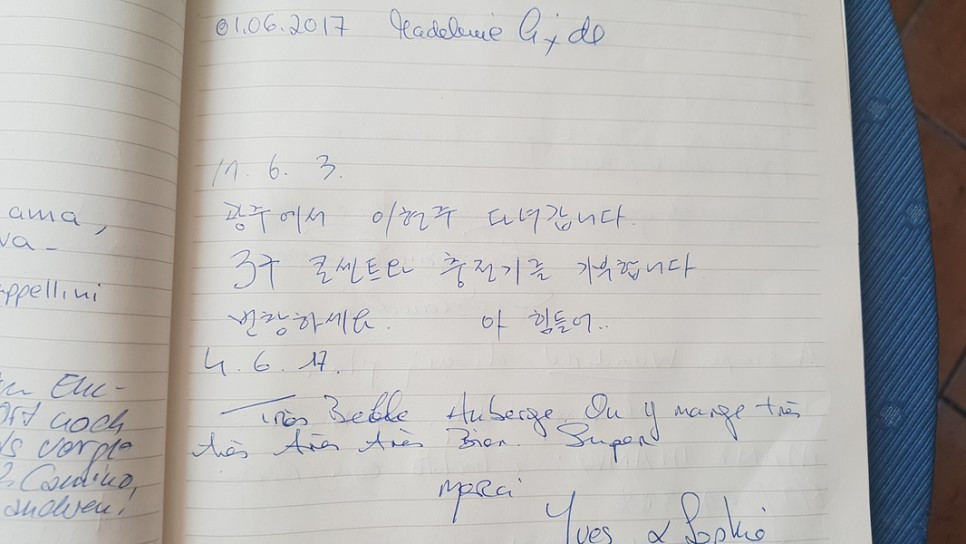 01.06.2017 Madeleine
ama,
va-
appellini
noch
Camino,
17. 6. 3.
광주에서 이현주 다녀갑니다.
3구 콘센트와 충전기를 기부합니다
번창하세요. 아 힘들어..
4. 6. 17.
Très Belle Auberge On y mange très
très très très Bien. Super
Merci
Yves & Sophie